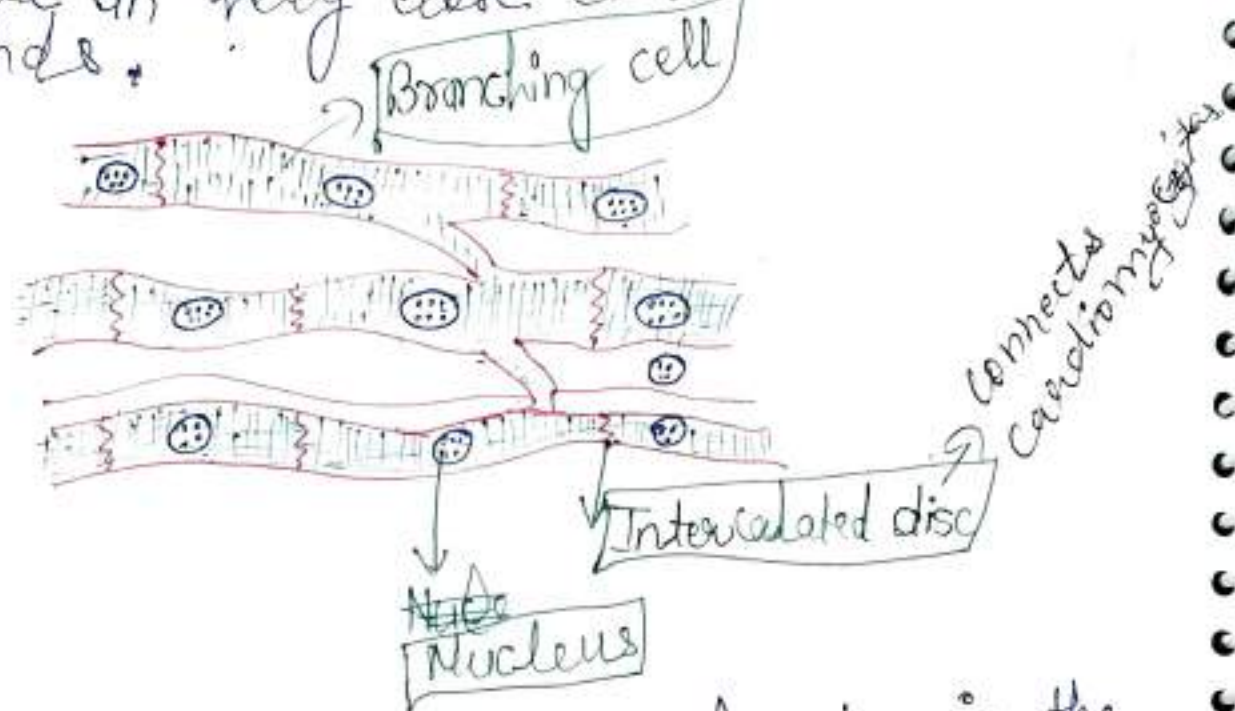 in very
nds.
Branching cell
connects
cardiomyocytes
Intercalated disc
Nucleus
in the